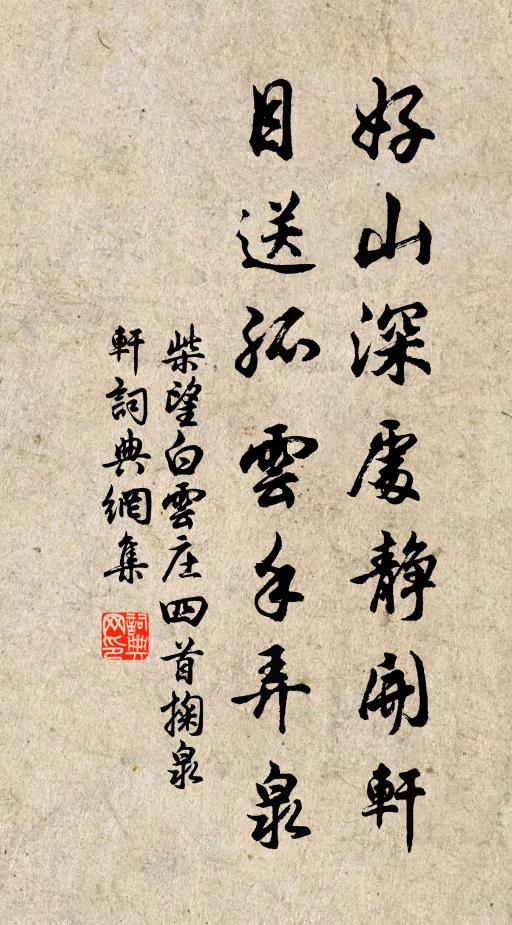 好山深處静開軒
目送孤雲手弄泉
柴望白雲庄四首掬泉
軒詞典網集
詞典
网印